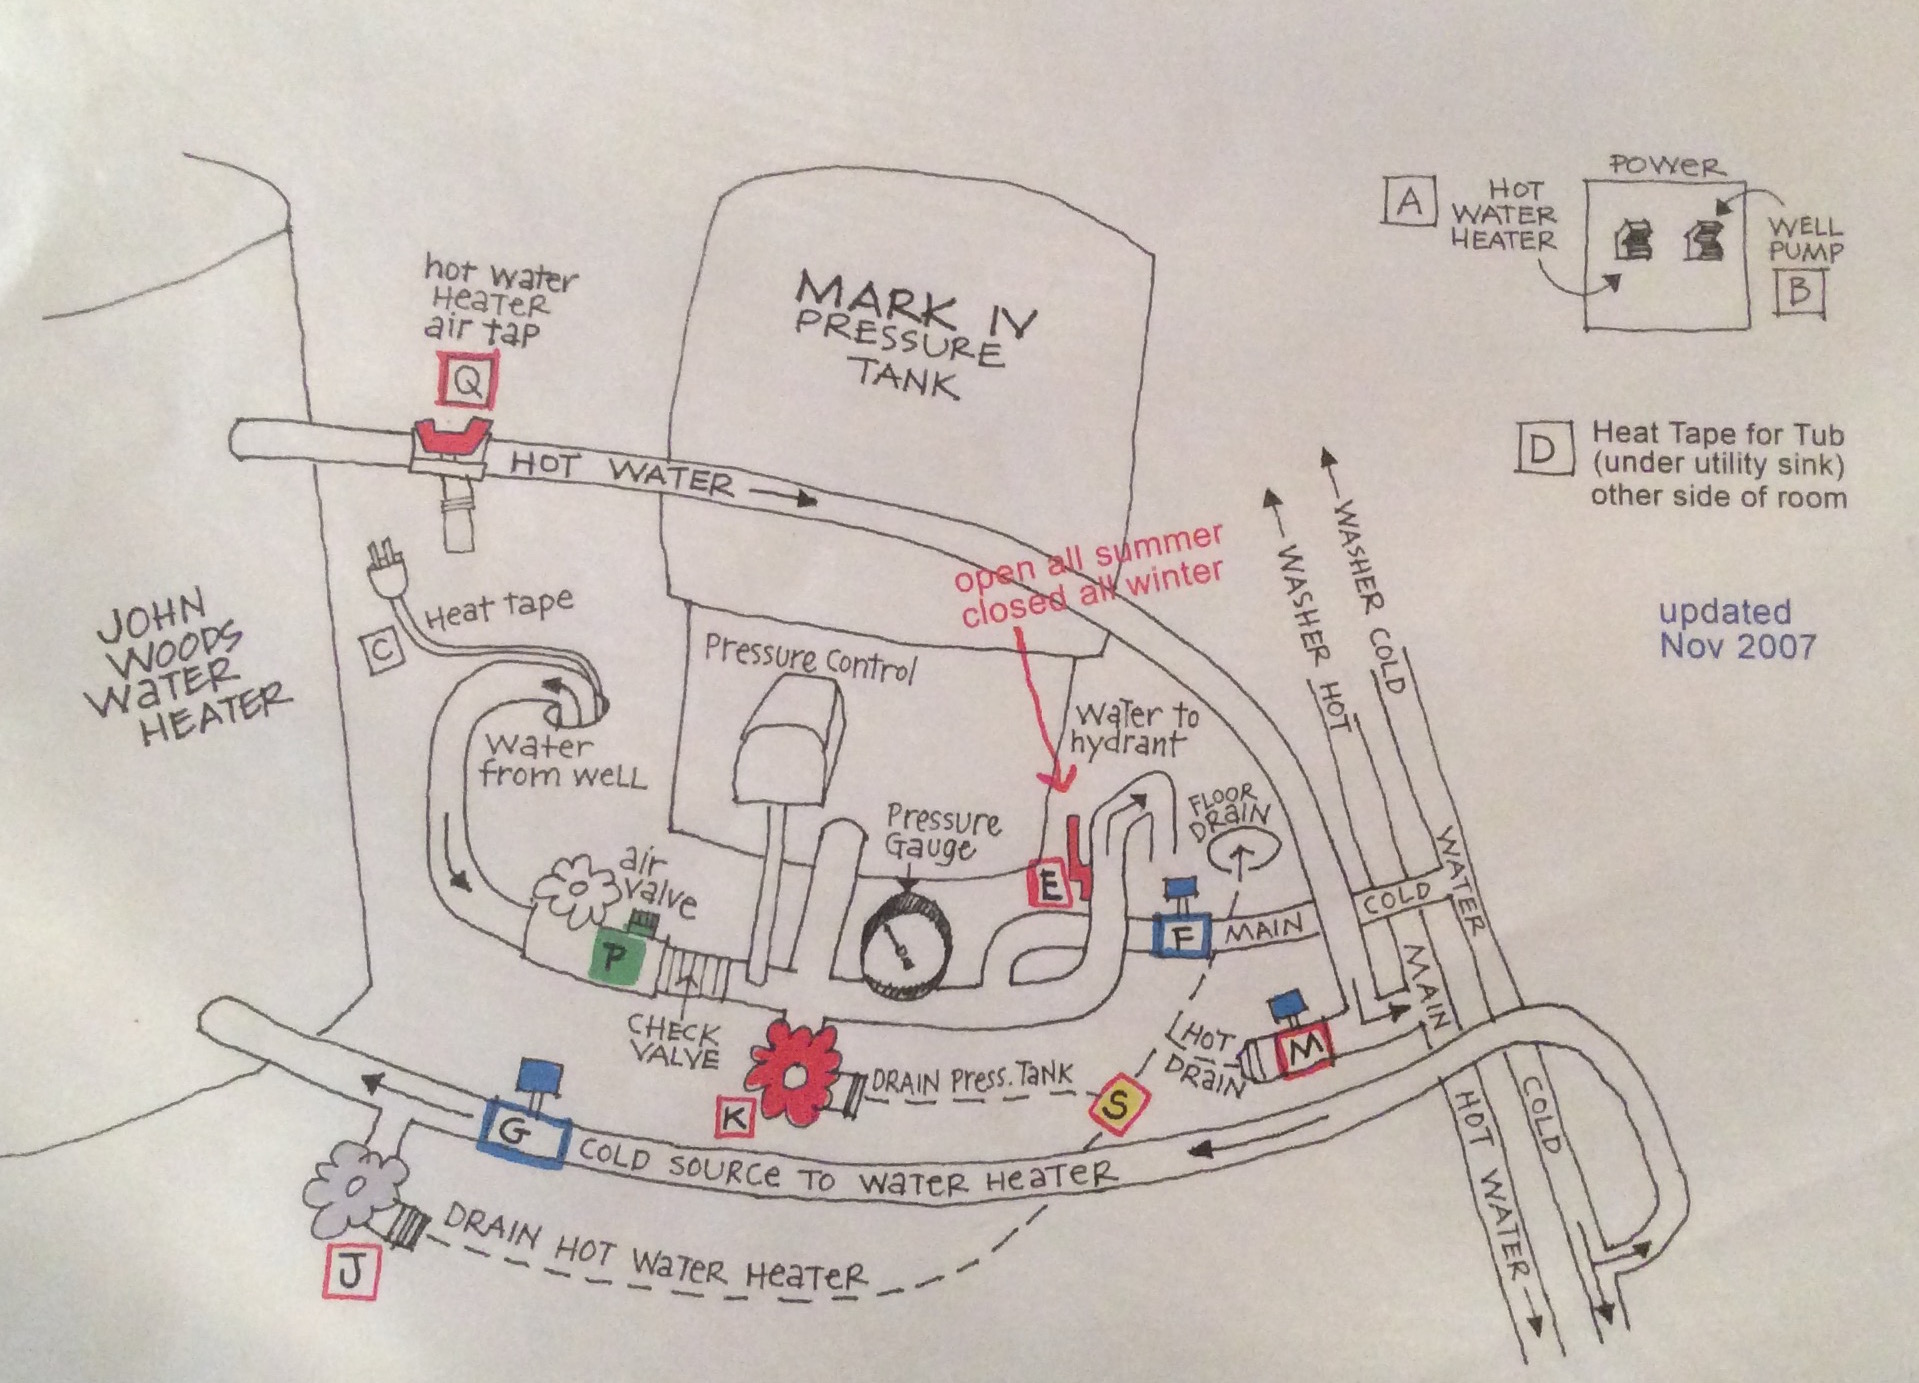 POWER
A
HOT
WATER
HEATER
WELL
PUMP
B
hot water
HEATER
air tap
Q
MARK IV
PRESSURE
TANK
HOT WATER
D
Heat Tape for Tub
(under utility sink)
other side of room
open all summer
closed all winter
WASHER COLD
WASHER HOT
updated
Nov 2007
JOHN
WOODS
WATER
HEATER
Heat tape
C
Pressure Control
Water to
hydrant
Water
from well
FLOOR
DRAIN
Pressure
Gauge
air
valve
E
WATER
COLD
F
MAIN
P
MAIN
CHECK
VALVE
HOT
DRAIN
M
DRAIN Press. TANK
K
S
G
COLD SOURCE TO WATER HEATER
HOT WATER
COLD
DRAIN HOT WATER HEATER
J